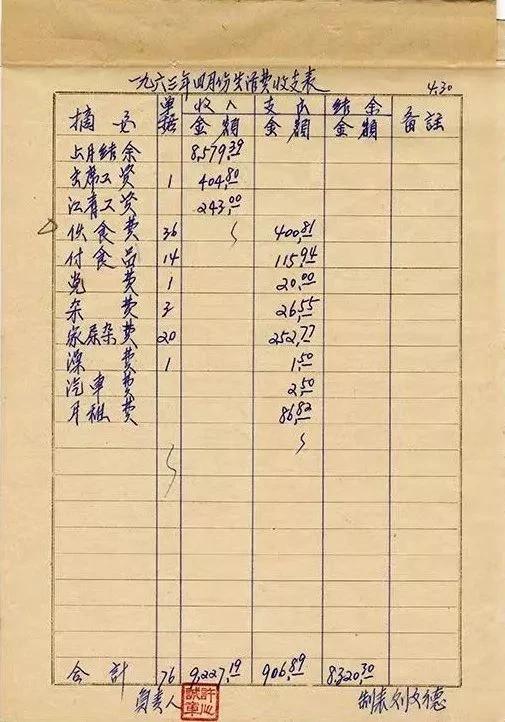 一九六三年四月份生活费收支表 4.30
摘要 單据 收入金額 支出金額 结余金額 备註
上月结余 8,579.39
主席工资 1 404.80
江青工资 243.00
伙食費 36 400.81
付食品 14 115.94
党費 1 20.00
杂費 3 26.55
家 杂費 20 252.77
澡費 1 1.50
汽車費 2.50
月租費 86.82
合計 76 9,227.19 906.89 8320.30
负责人 制表刘文德